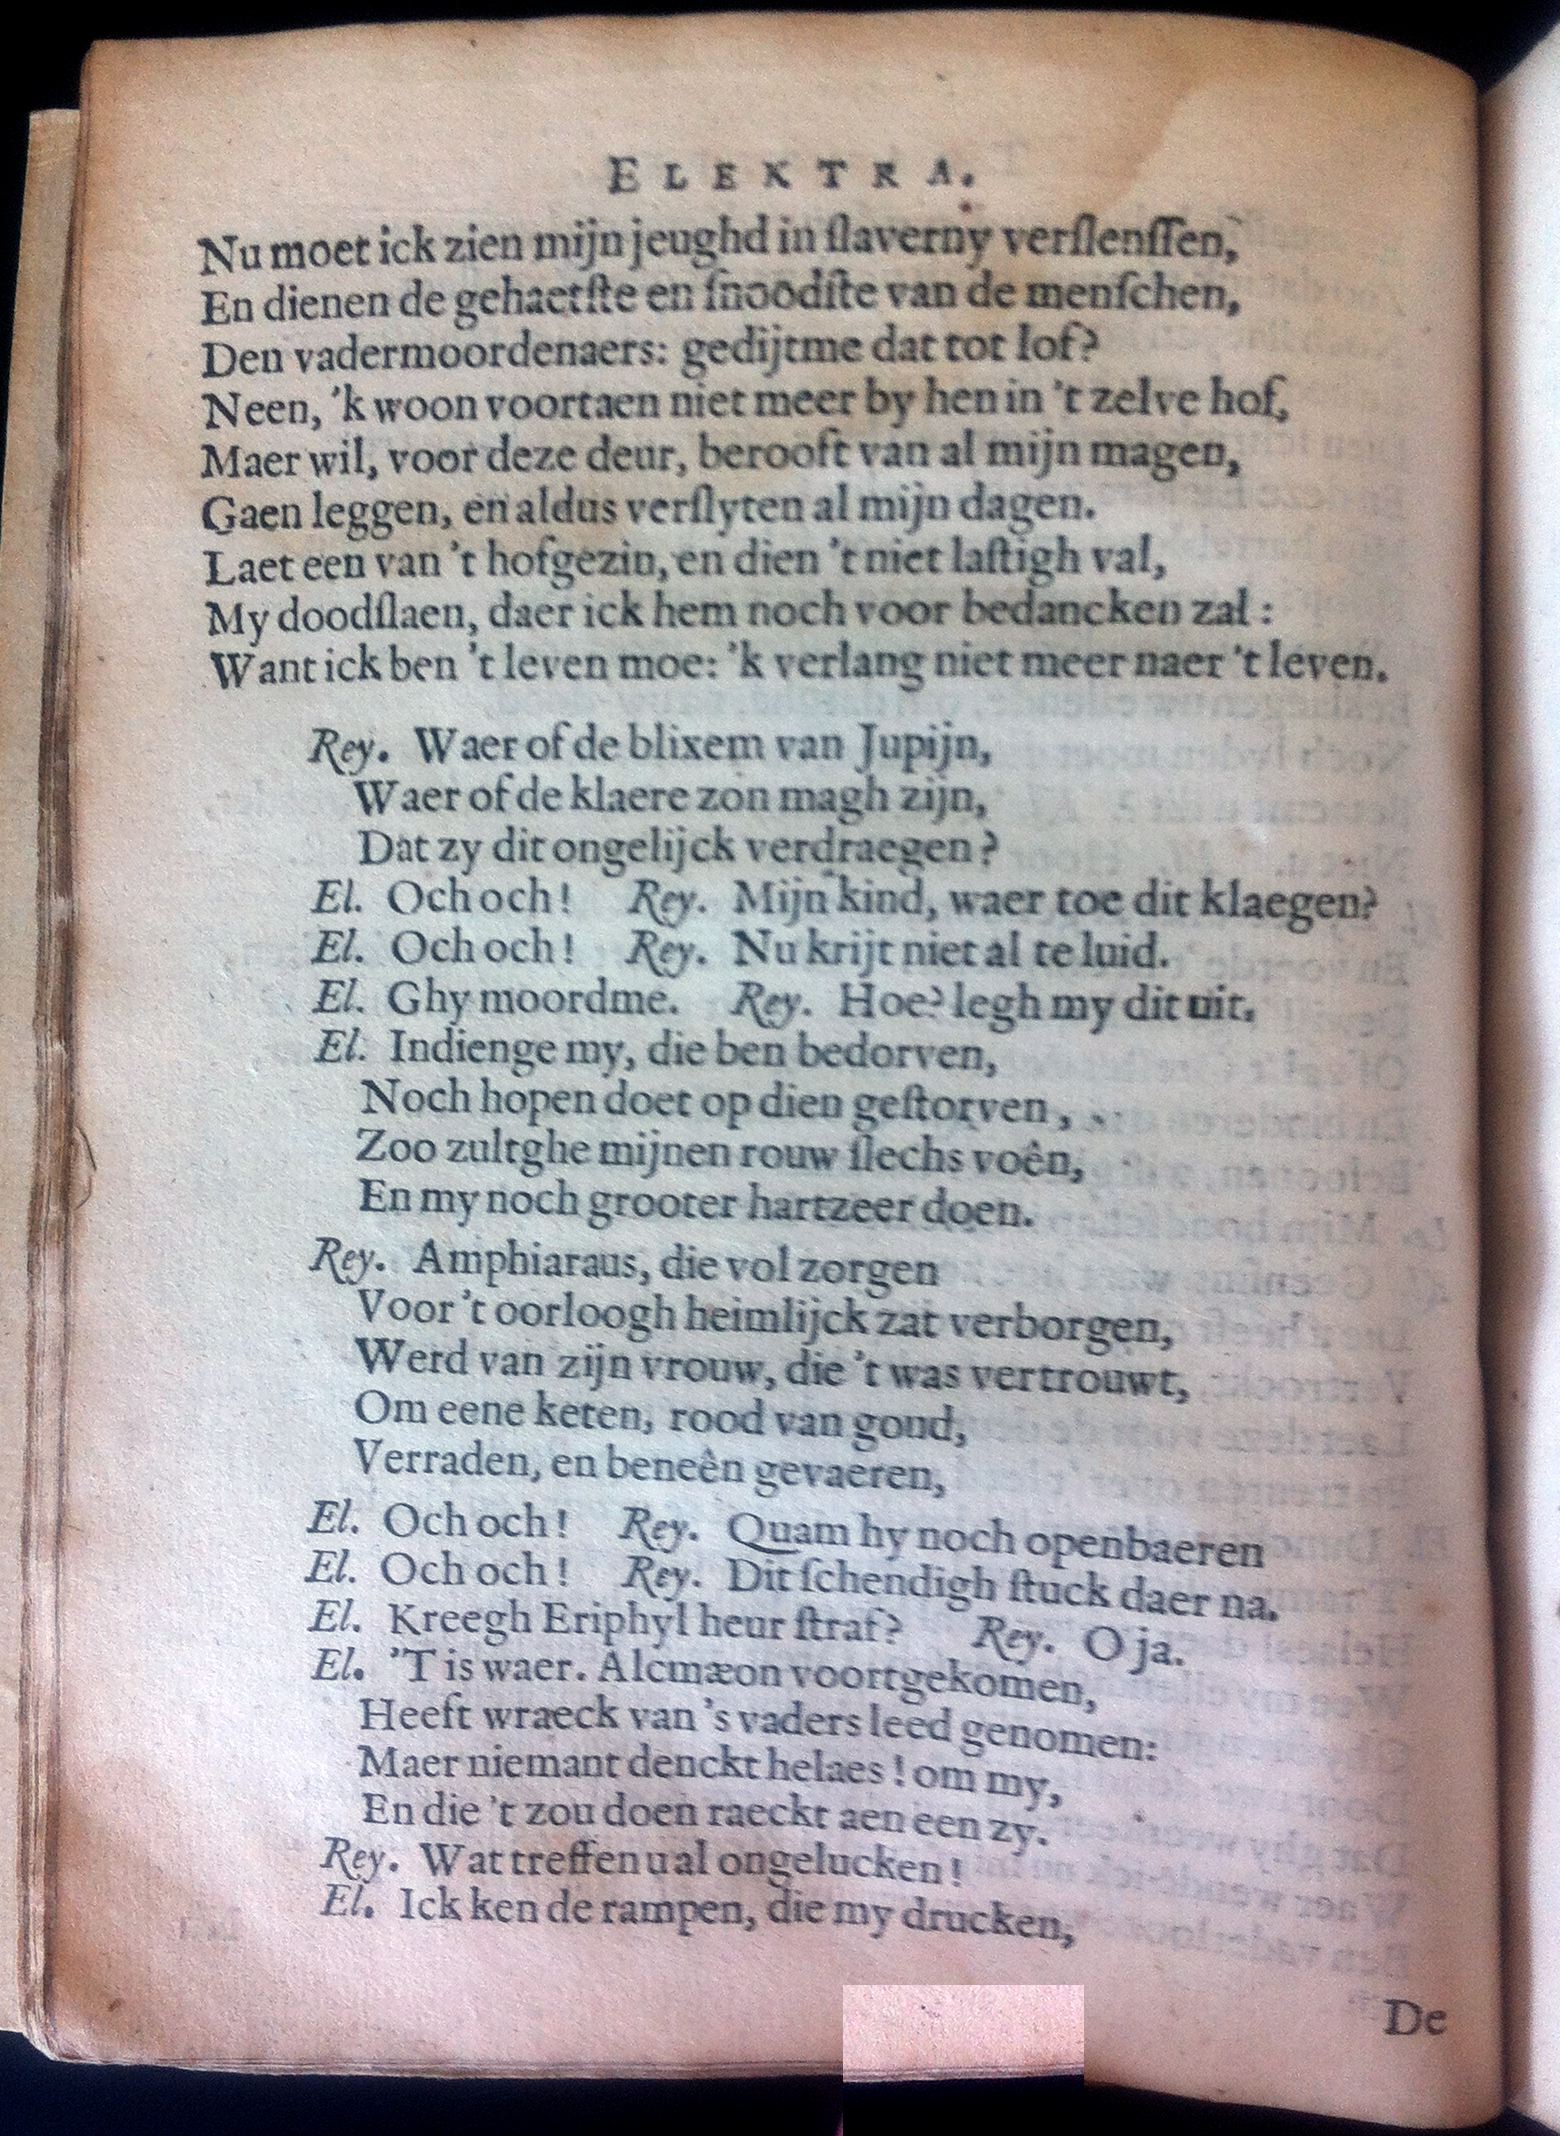 ELEKTRA.
Nu moet ick zien mijn jeughd in ſlaverny verſlenſſen,
En dienen de gehaetſte en ſnoodſte van de menſchen,
Den vadermoordenaers: gedijtme dat tot lof?
Neen, 'k woon voortaen niet meer by hen in 't zelve hof,
Maer wil, voor deze deur, berooft van al mijn magen,
Gaen leggen, en aldus verſlyten al mijn dagen.
Laet een van 't hofgezin, en dien 't niet laſtigh val,
My doodſlaen, daer ick hem noch voor bedancken zal:
Want ick ben 't leven moe: 'k verlang niet meer naer 't leven.
Rey. Waer of de blixem van Jupijn,
Waer of de klaere zon magh zijn,
Dat zy dit ongelijck verdraegen?
El. Och och! Rey. Mijn kind, waer toe dit klaegen?
El. Och och! Rey. Nu krijt niet al te luid.
El. Ghy moordme. Rey. Hoe? legh my dit uit.
El. Indienge my, die ben bedorven,
Noch hopen doet op dien geſtorven,
Zoo zultghe mijnen rouw ſlechs voên,
En my noch grooter hartzeer doen.
Rey. Amphiaraus, die vol zorgen
Voor 't oorloogh heimlijck zat verborgen,
Werd van zijn vrouw, die 't was vertrouwt,
Om eene keten, rood van goud,
Verraden, en beneên gevaeren,
El. Och och! Rey. Quam hy noch openbaeren
El. Och och! Rey. Dit ſchendigh ſtuck daer na.
El. Kreegh Eriphyl heur ſtraf? Rey. O ja.
El. 'T is waer. Alcmæon voortgekomen,
Heeft wraeck van 's vaders leed genomen:
Maer niemant denckt helaes! om my,
En die 't zou doen raeckt aen een zy.
Rey. Wat treffen u al ongelucken!
El. Ick ken de rampen, die my drucken,
De